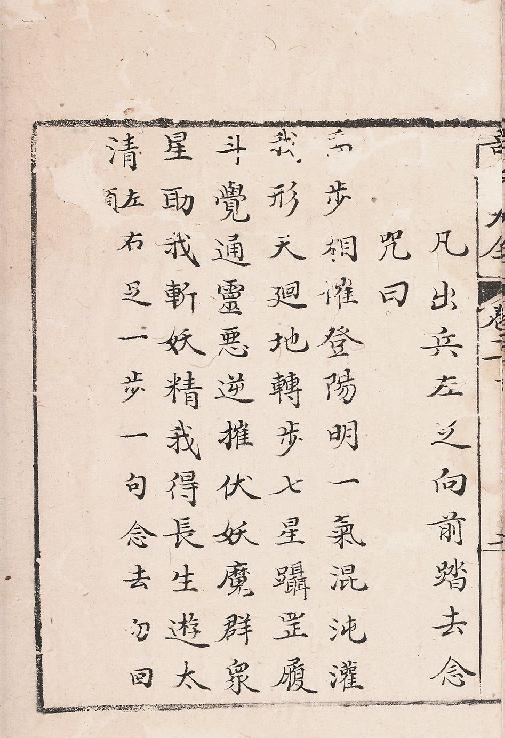 凡出兵左足向前踏去念
咒曰
步相催登陽明一氣混沌灌
我形天迴地轉步七星躡罡履
斗覺通靈惡逆摧伏妖魔群衆
星助我斬妖精我得長生遊太
清左右足一步一句念去勿回
頭